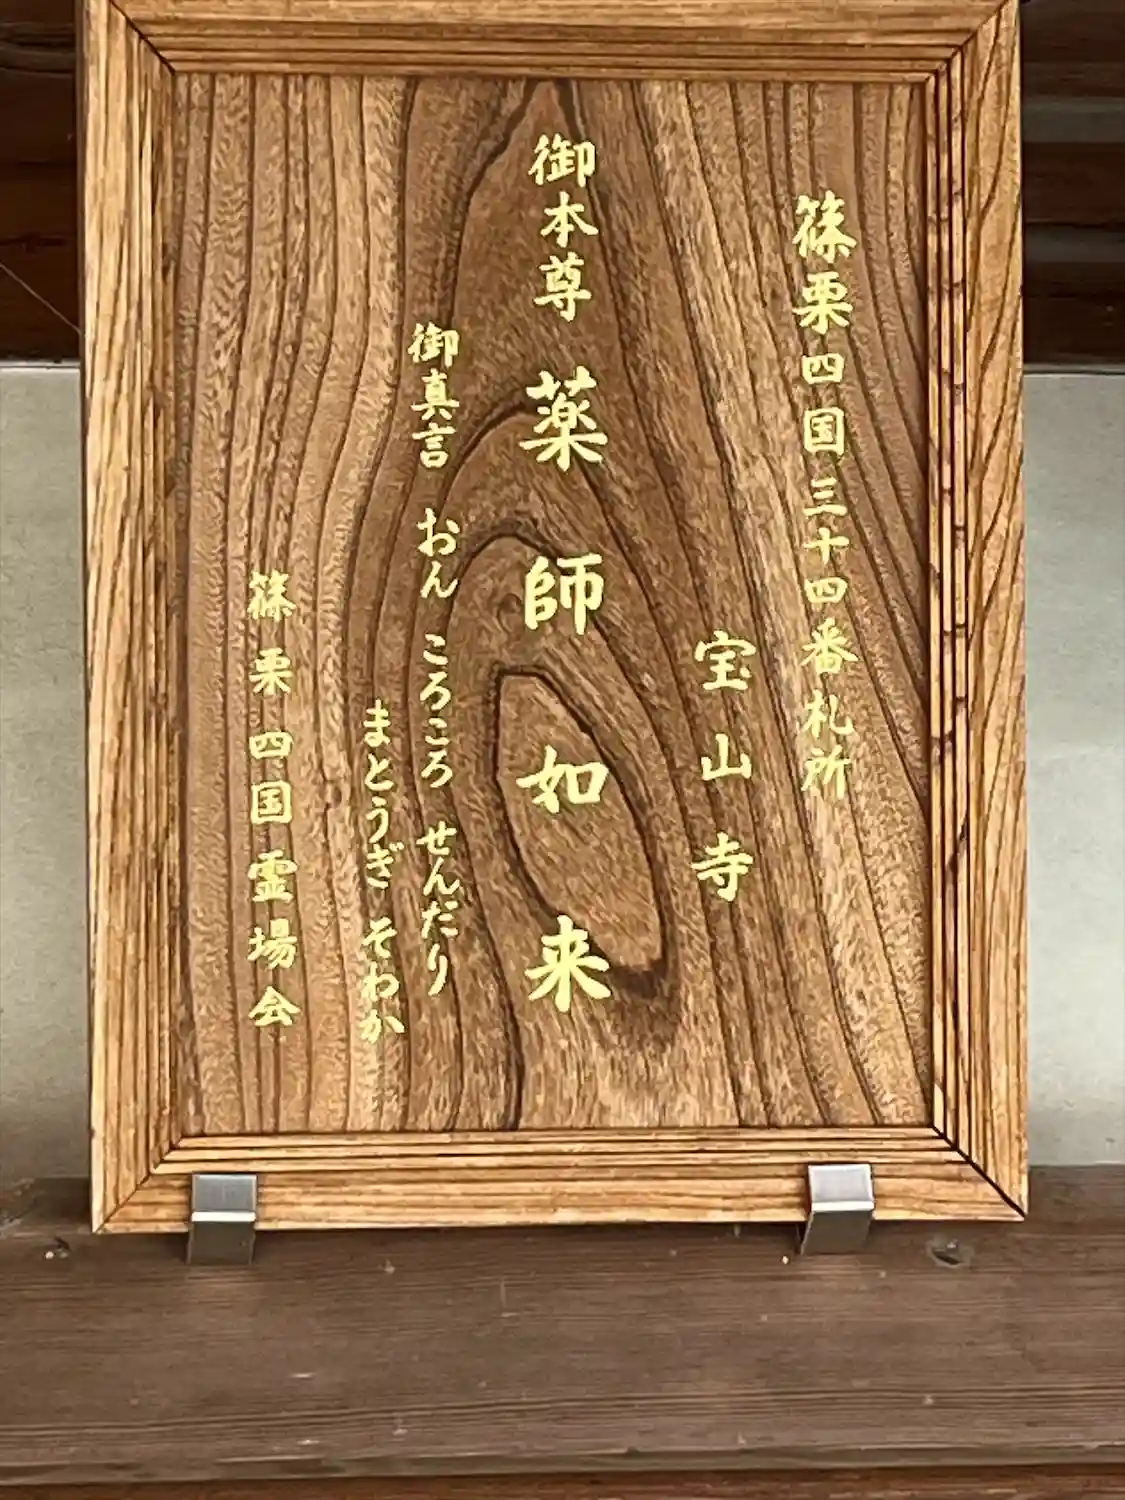 篠栗四国三十四番札所
宝山寺
御本尊 薬師如来
御真言 おん ころころ せんだり
まとうぎ そわか
篠栗四国霊場会